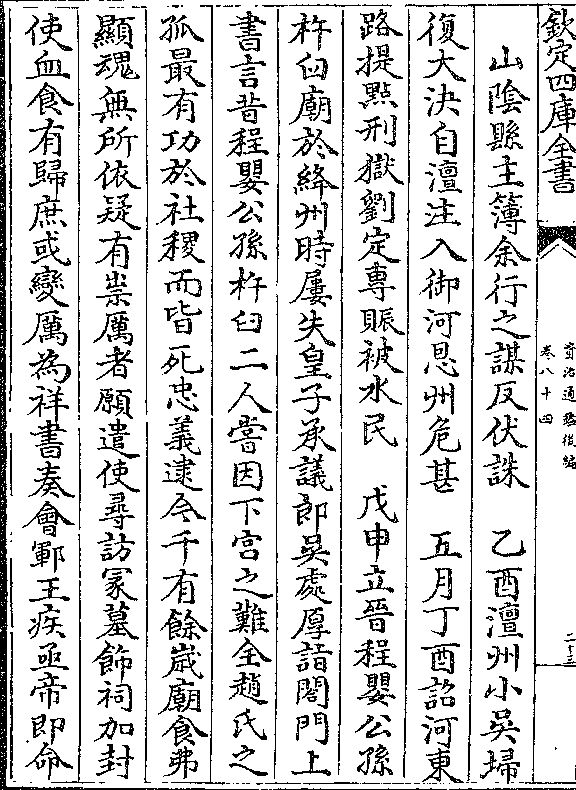 欽定四庫全書
資治通鑑後編
卷八十四
二十三
山陰縣主簿余行之謀反伏誅　乙酉澶州小吳埽
復大決自澶注入御河恩州危甚　五月丁酉詔河東
路提㸃刑獄劉定專賑被水民　戊申立晉程嬰公孫
杵臼廟於絳州時屢失皇子承議郎吳處厚詣閤門上
書言昔程嬰公孫杵臼二人嘗因下宮之難全趙氏之
孤最有功於社稷而皆死忠義逮今千有餘歲廟食弗
顯魂無所依疑有祟厲者願遣使尋訪冢墓飾祠加封
使血食有歸庶或變厲為祥書奏會鄆王疾亟帝即命